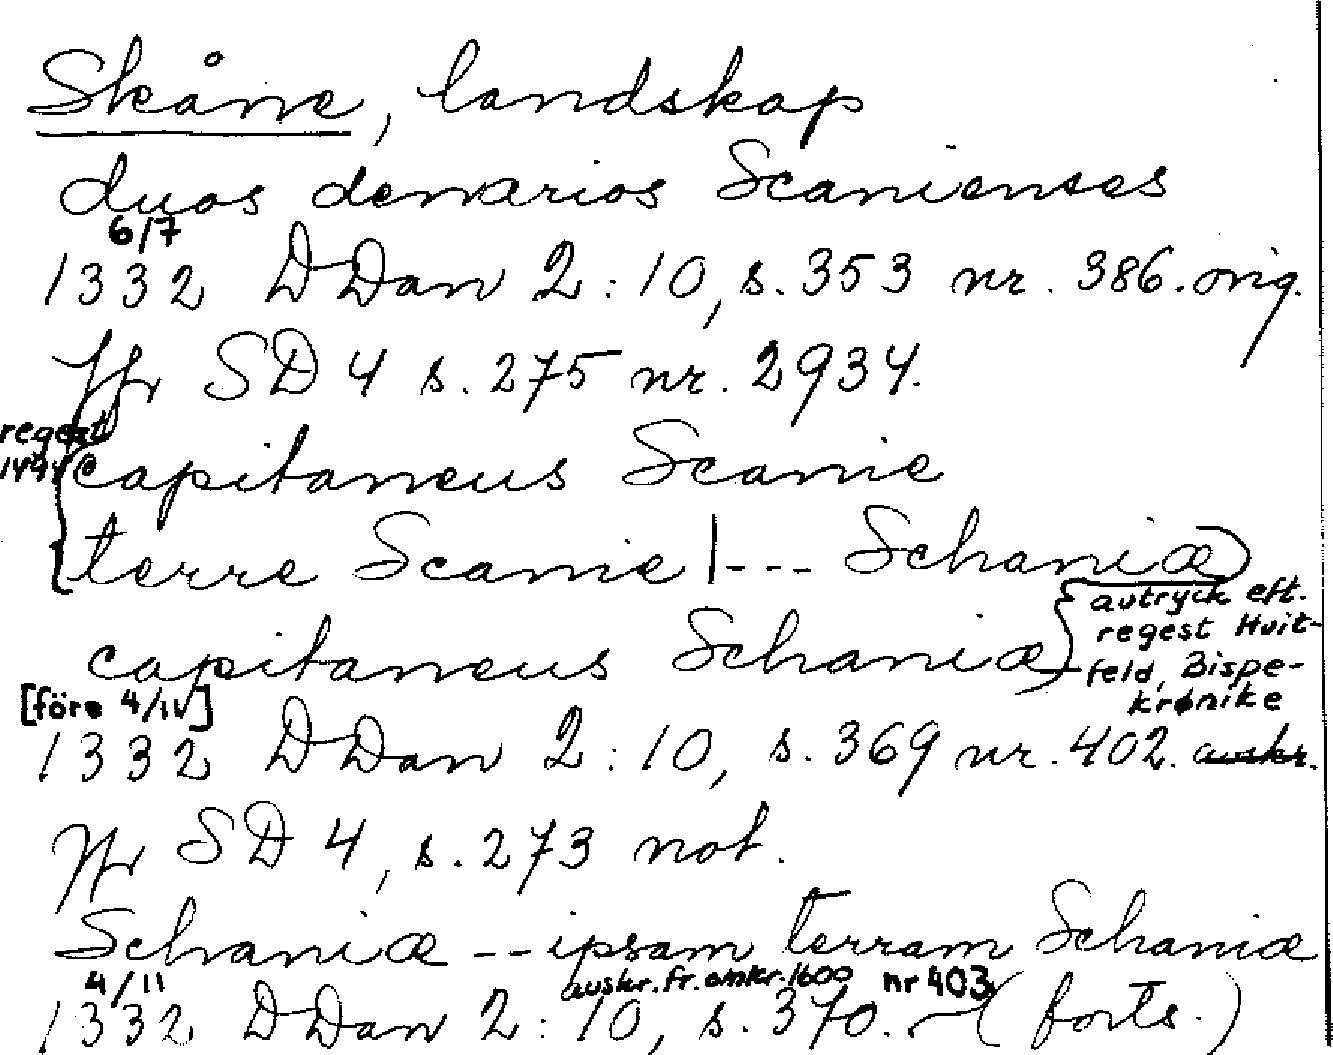 Skåne, landskap
duos denarios Scanienses
6/7
1332 DDan 2:10, s. 353 nr. 386. orig.
Jfr SD 4 s. 275 nr. 2934.
regest
1494
capitaneus Scanie
terre Scanie |--- Schaniæ
avtryck eft.
regest Huit-
feld, Bispe-
krønike
capitaneus Schaniæ
[före 4/IV]
1332 DDan 2:10, s. 369 nr. 402. avskr.
Jfr SD 4, s. 273 not.
Schaniæ -- ipsam terram Schaniæ
4/11 avskr. fr. omkr. 1600 nr 403
1332 DDan 2:10, s. 370. (forts.)